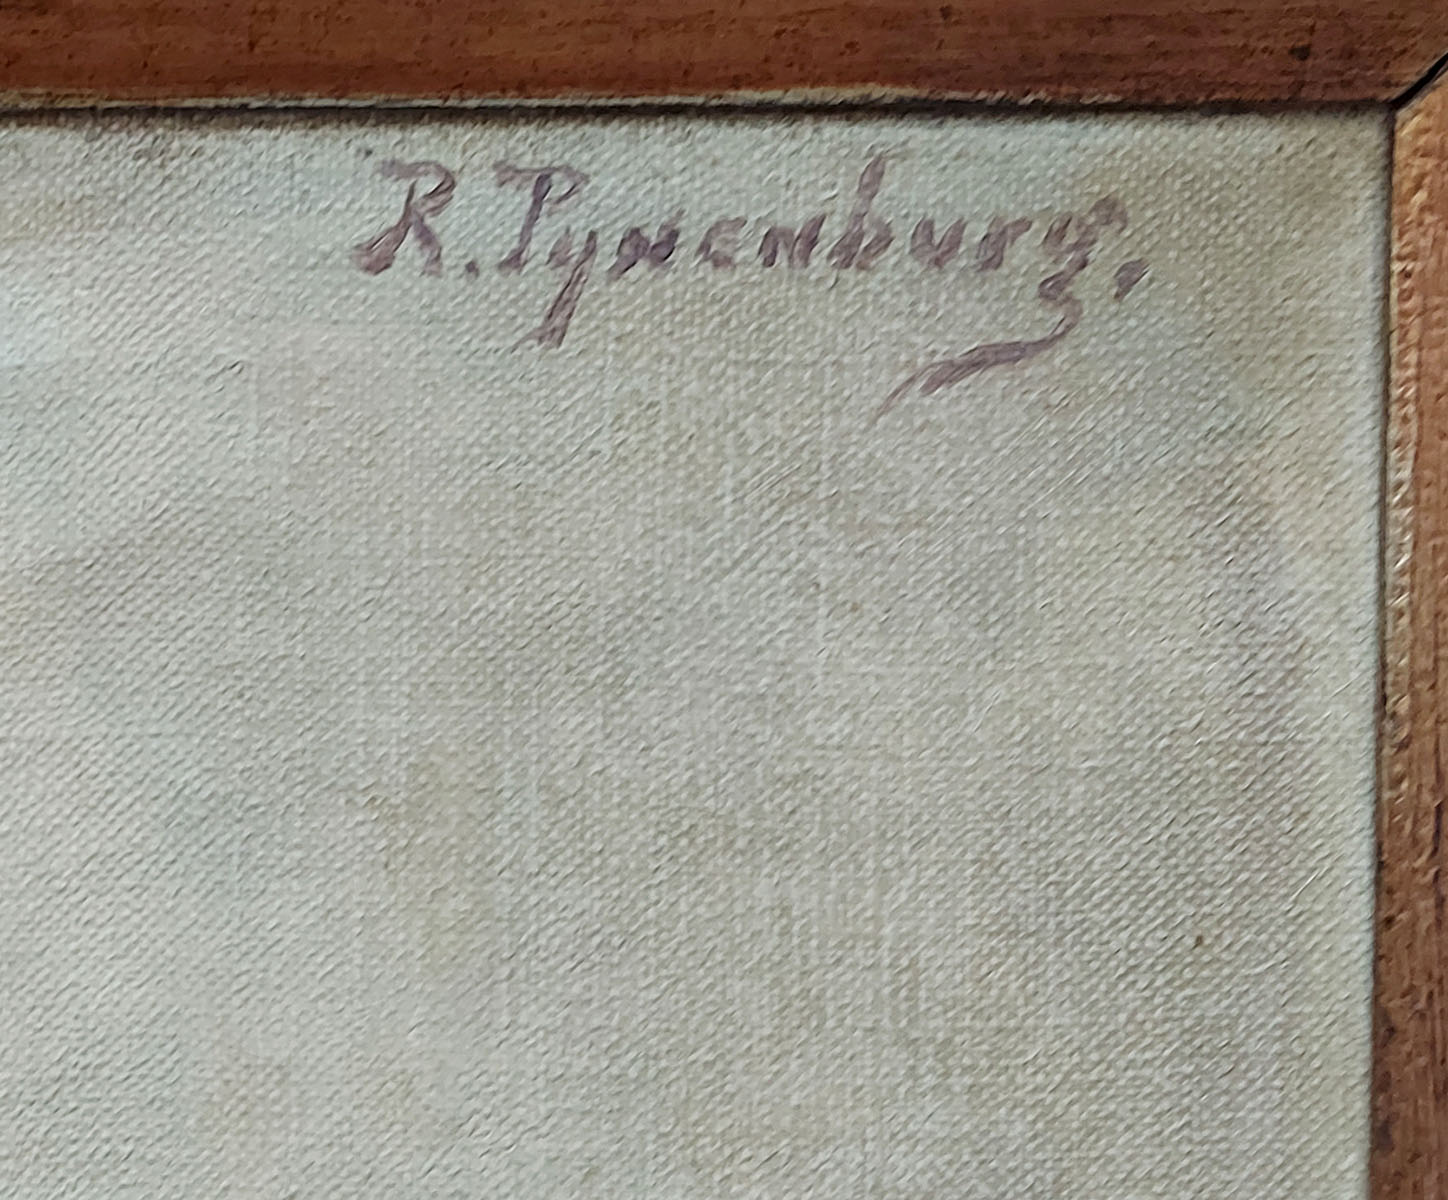 R. Pynenburg.